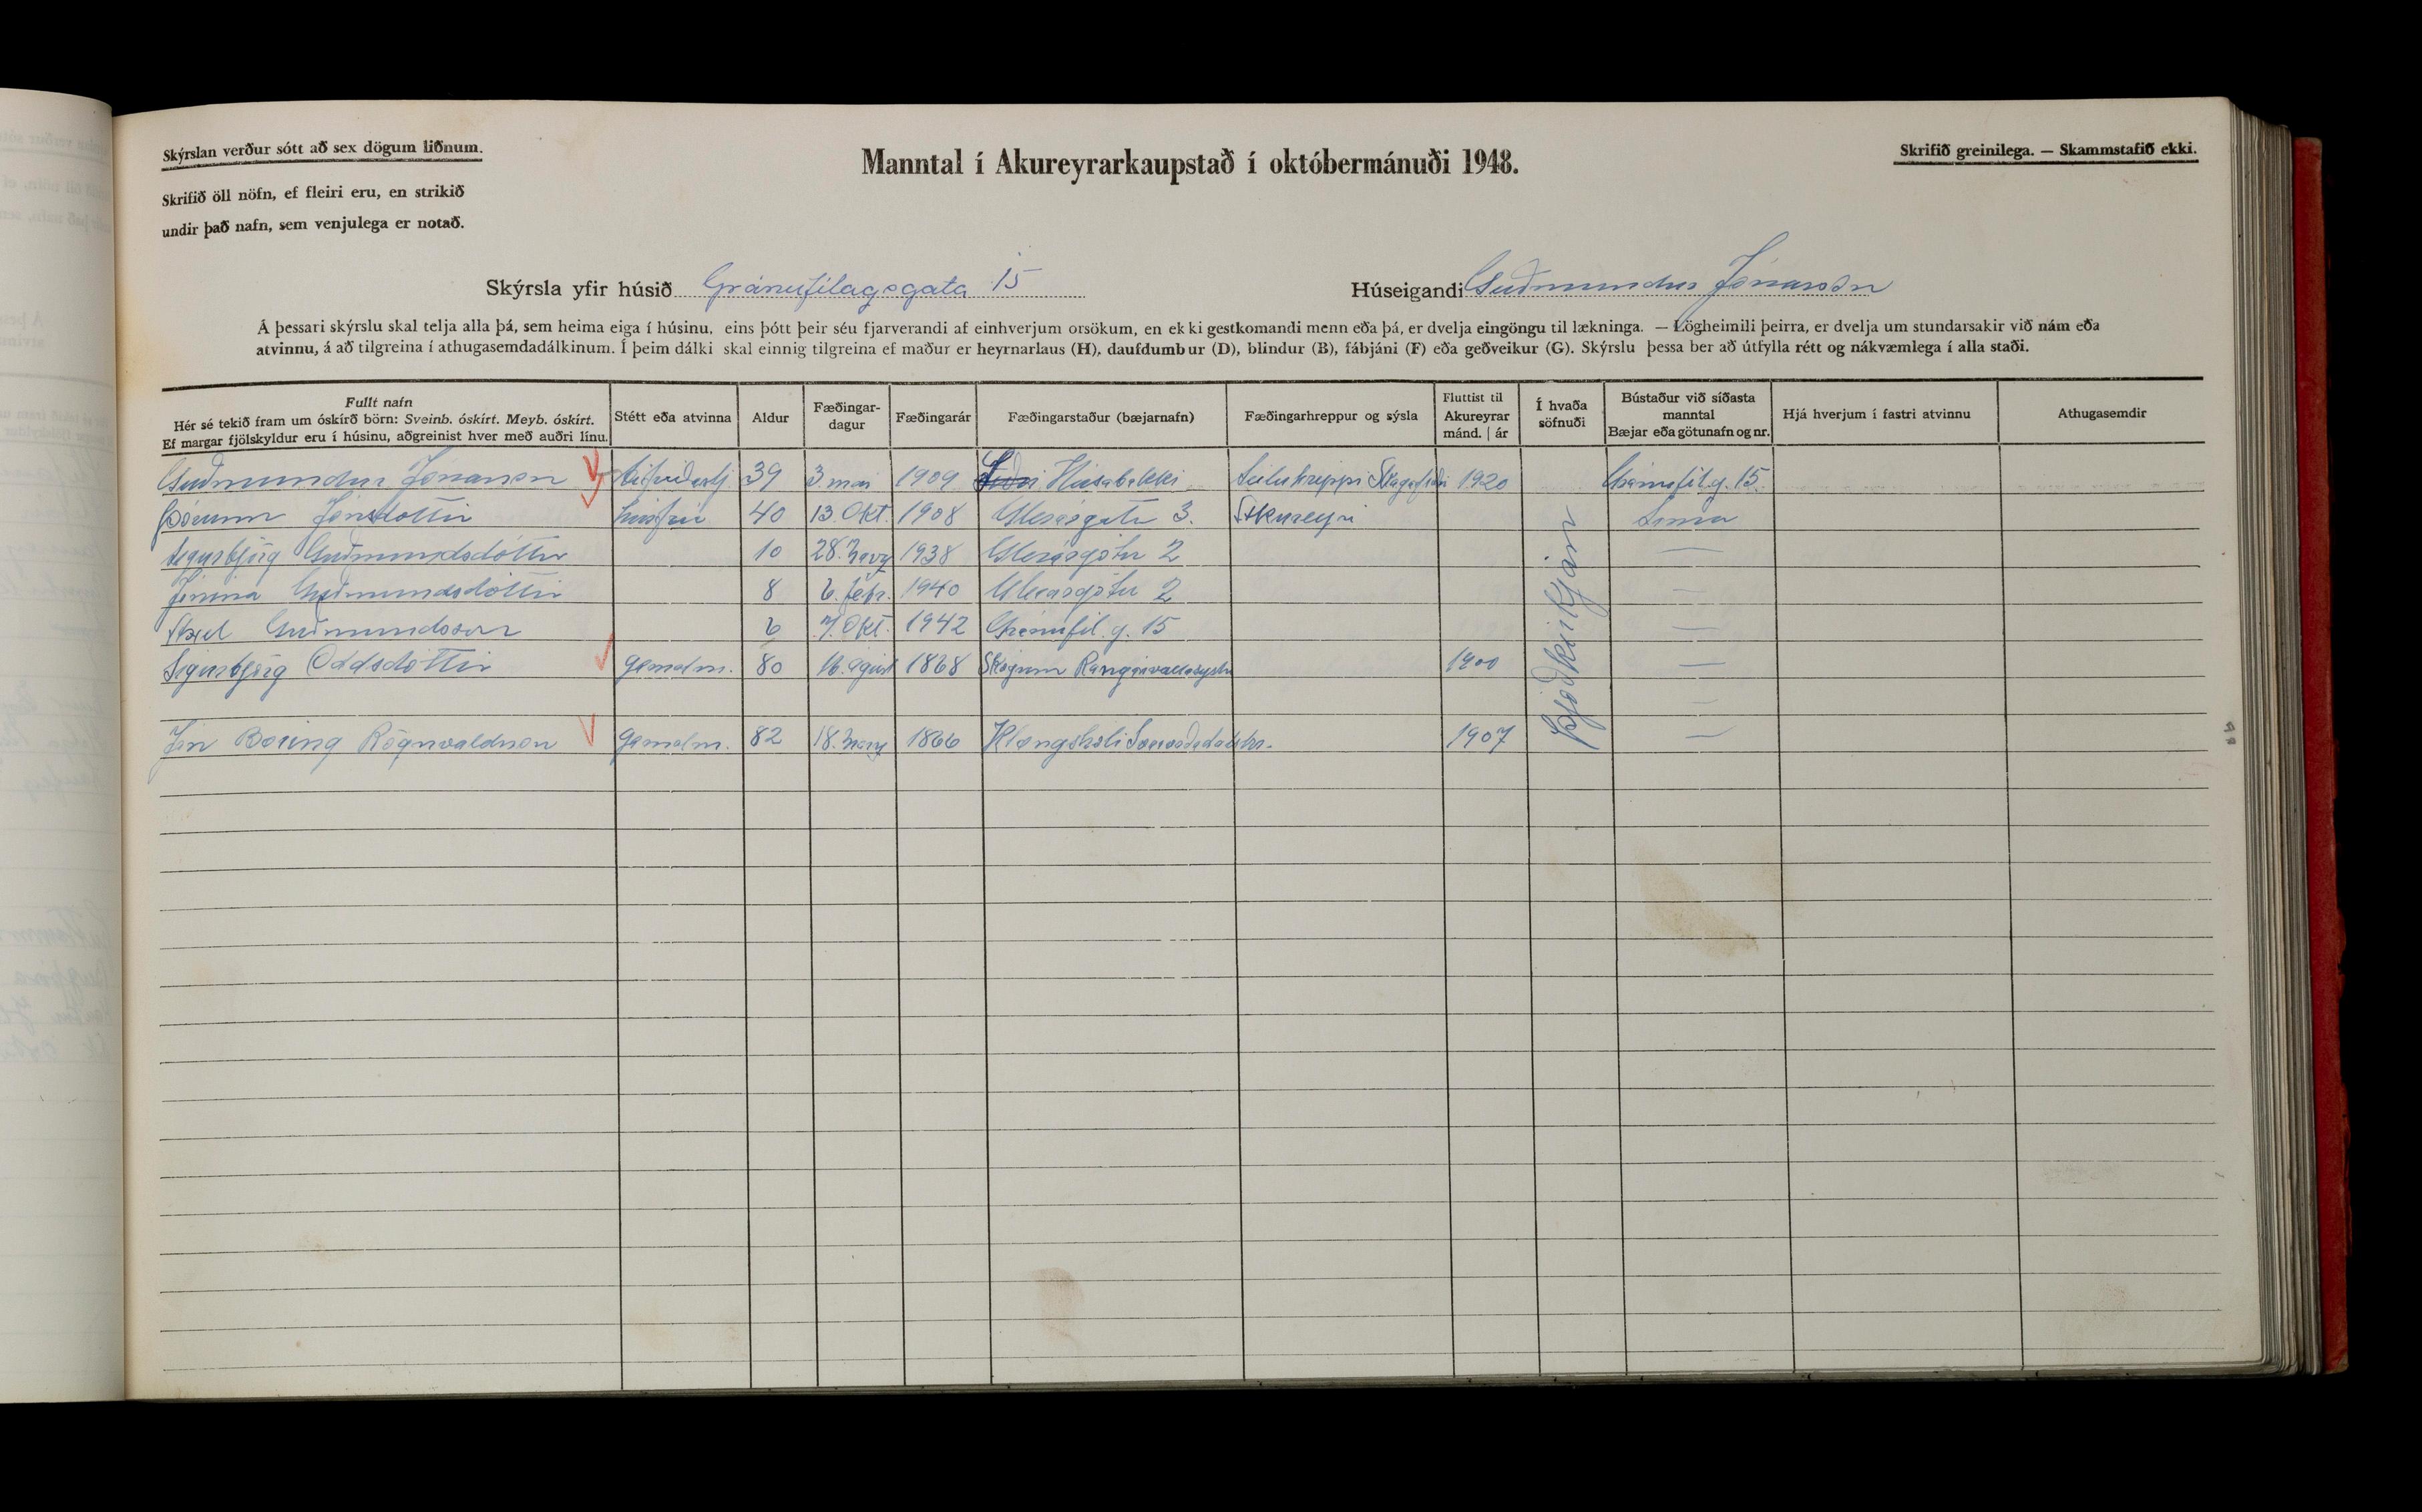 Skýrslan verður sótt að sex dögum liðnum.
Skrifið öll nöfn, ef fleiri eru, en strikið
undir það nafn, sem venjulega er notað.
Manntal í Akureyrarkaupstað í októbermánuði 1948.
Skrifið greinilega. — Skammstafið ekki.
Skýrsla yfir húsið Gránufélagsgata 15
Húseigandi Guðmundur Jónasson
Á þessari skýrslu skal telja alla þá, sem heima eiga í húsinu, eins þótt þeir séu fjarverandi af einhverjum orsökum, en ekki gestkomandi menn eða þá, er dvelja eingöngu til lækninga. — Lögheimili þeirra, er dvelja um stundarsakir við nám eða
atvinnu, á að tilgreina í athugasemdadálkinum. Í þeim dálki skal einnig tilgreina ef maður er heyrnarlaus (H), daufdumbur (D), blindur (B), fábjáni (F) eða geðveikur (G). Skýrslu þessa ber að útfylla rétt og nákvæmlega í alla staði.
Fullt nafn
Hér sé tekið fram um óskírð börn: Sveinb. óskírt. Meyb. óskírt.
Ef margar fjölskyldur eru í húsinu, aðgreinist hver með auðri línu.
Stétt eða atvinna
Aldur
Fæðingar-
dagur
Fæðingarár
Fæðingarstaður (bæjarnafn)
Fæðingarhreppur og sýsla
Fluttist til
Akureyrar
mánd. | ár
Í hvaða
söfnuði
Bústaður við síðasta
manntal
Bæjar eða götunafn og nr.
Hjá hverjum í fastri atvinnu
Athugasemdir
Guðmundur Jónasson Bifreiðastj 39 3. mai 1909 Húsabakki Seiluhreppi Skagafirði 1920 Gránufél.g. 15.
Þórunn Jónsdóttir húsfrú 40 13. Okt. 1908 Glerárgata 3. Akureyri Sama
Sigurbjörg Guðmundsdóttir 10 28. marz 1938 Glerárgötu 2 —
Jónína Guðmundsdóttir 8 6. febr. 1940 Glerárgötu 2 —
Axel Guðmundsson 6 7. Okt. 1942 Gránufél.g. 15 —
Sigurbjörg Oddsdóttir gamalm. 80 16. ágúst 1868 Skógum Rangárvallasýslu 1900 —
Jón Baring Rögnvaldsson gamalm. 82 18. marz 1866 Klængshóli Svarfaðadalshr. 1907 —
Þjóðkirkjan